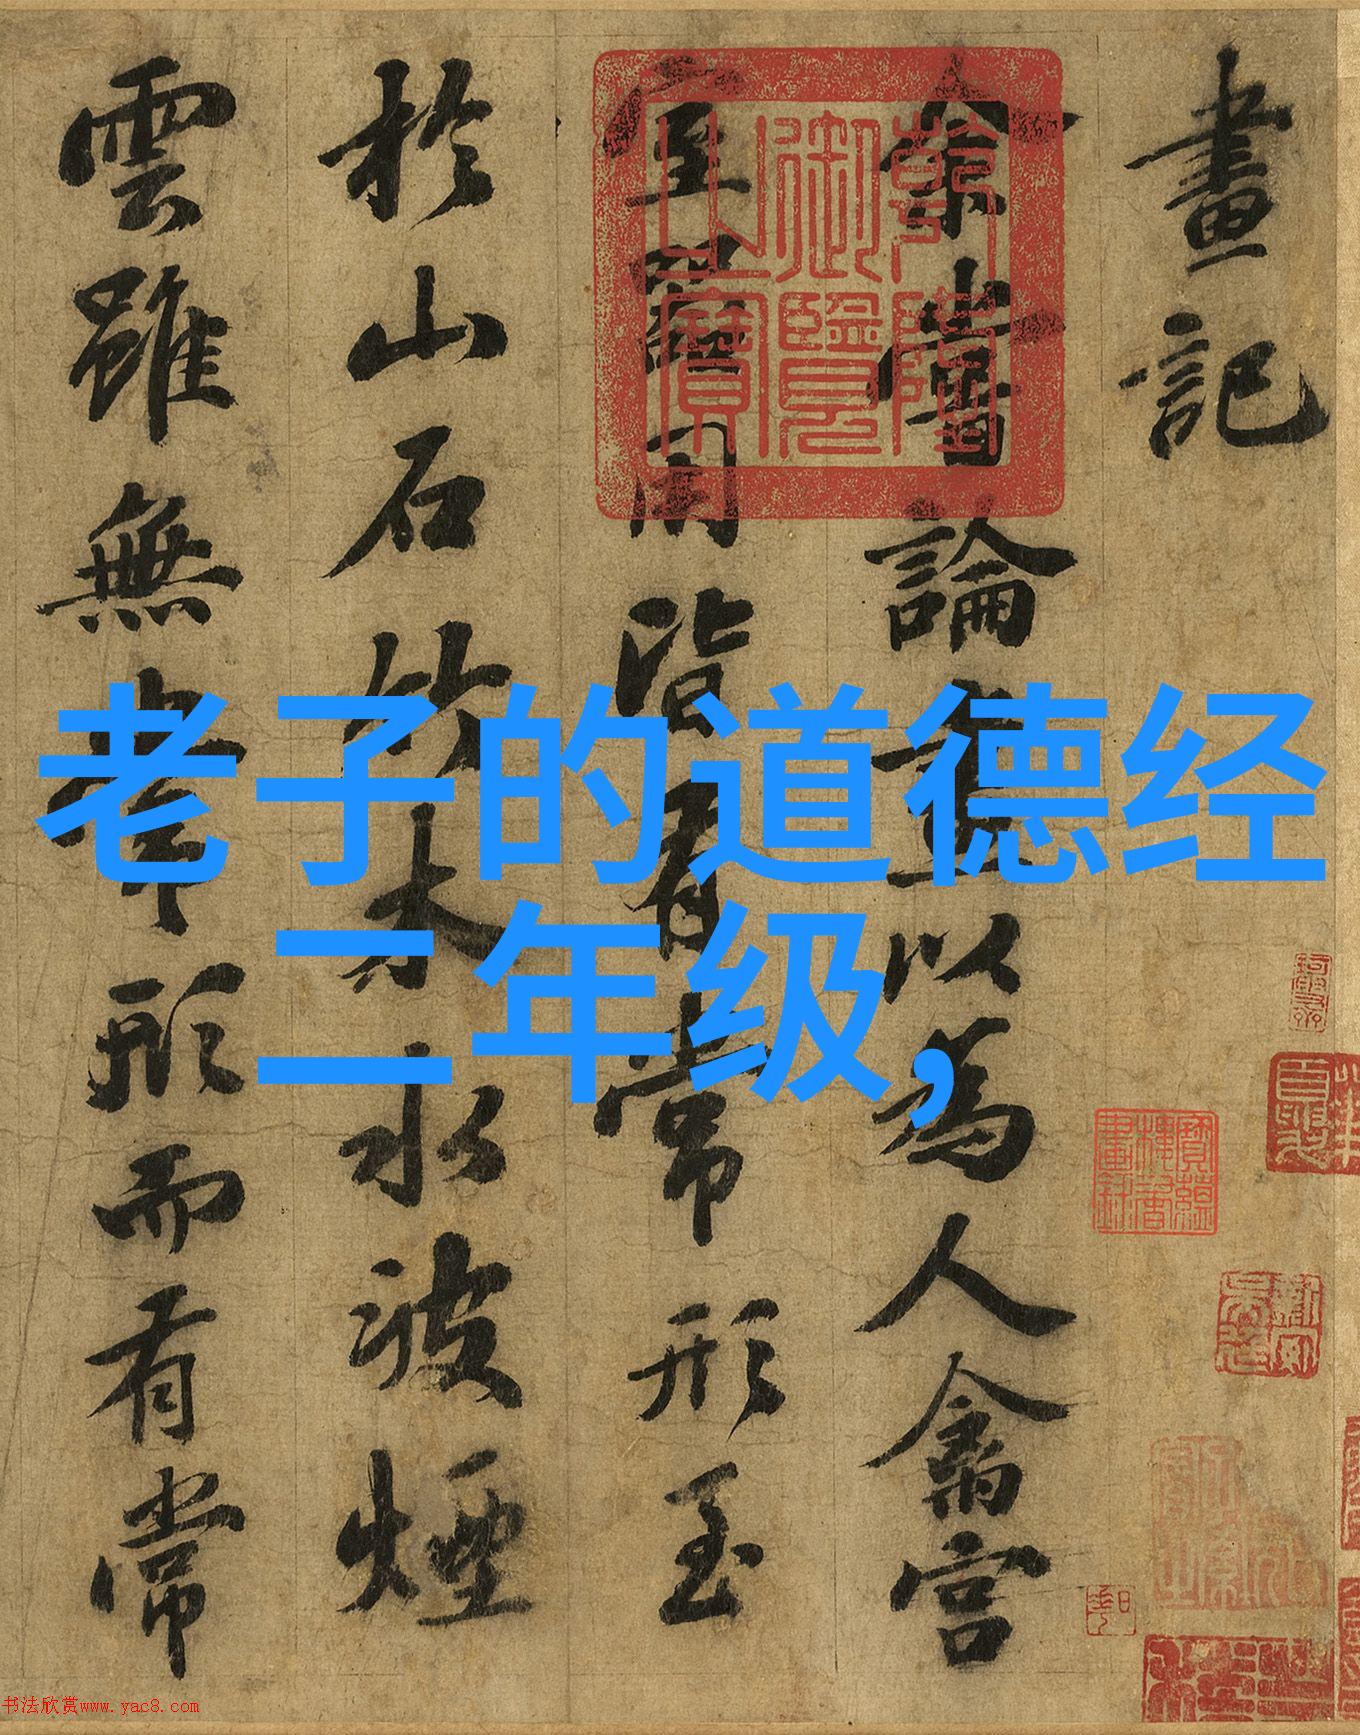 畫記
余嘗論畫以為人禽宮
室器用皆有常形至
於山石竹木水波煙
雲雖無常形而有常
乾隆御覽之寶
老子的道德经
二年级,
书法欣赏www.yac8.com